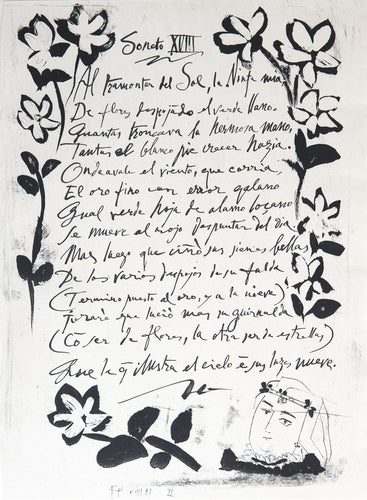 Soneto XVIII
Al tramontar del Sol, la Ninfa mia
De flores despojado el verde llano.
Quantas troncava la hermosa mano,
Tantas el blanco pie crecer hazia.
Ondeavale el viento, que corria,
El oro fino con error galano
Qual verde hoja de alamo loçano
Se mueve al rojo despuntar del dia
Mas luego que ciñó sus sienes bellas
De los varios despojos de su falda
(Termino puesto al oro, y a la nieve)
Juraré que lució mas su guirnalda
(Cõ ser de flores, la otra ser de estrellas)
Que la q̃ ilustra el cielo ẽ sus luzes nueve.
II